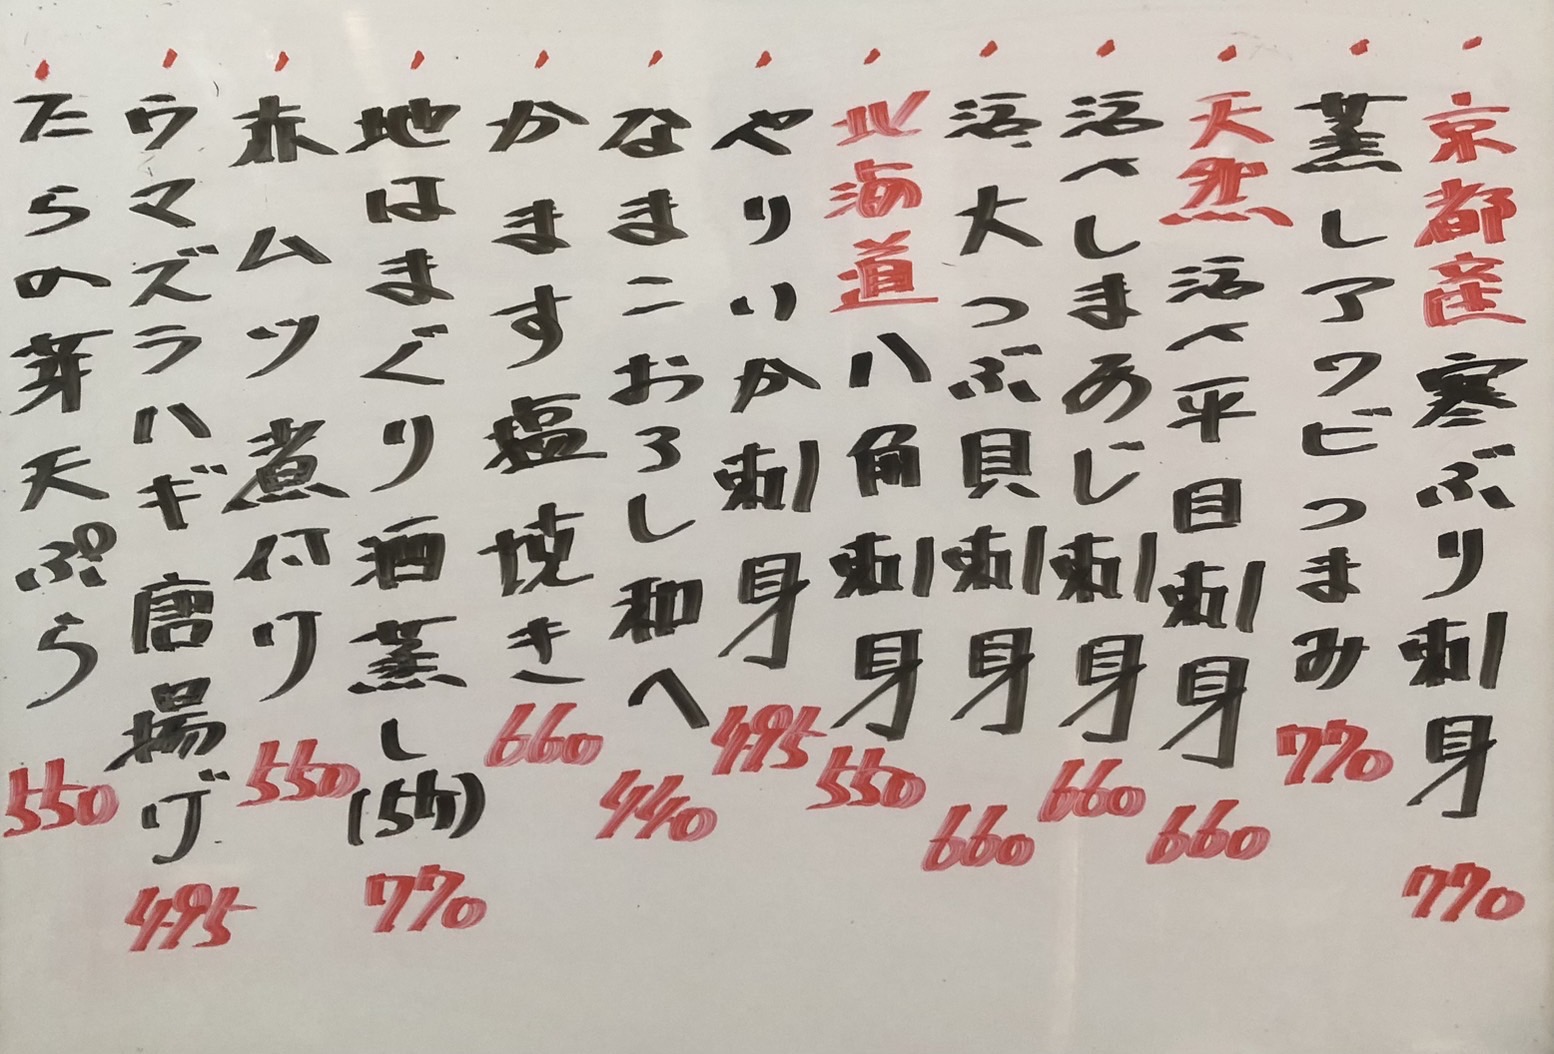 京都産寒ぶり刺身 770
蒸しアワビつまみ 770
天然活〆平目刺身 660
活〆しまあじ刺身 660
活大つぶ貝刺身 660
北海道八角刺身 550
やりいか刺身 495
なまこおろし和へ 440
かます塩焼き 660
地はまぐり酒蒸し(5ケ) 770
赤ムツ煮付け 550
ウマズラハギ唐揚げ 495
たらの芽天ぷら 550